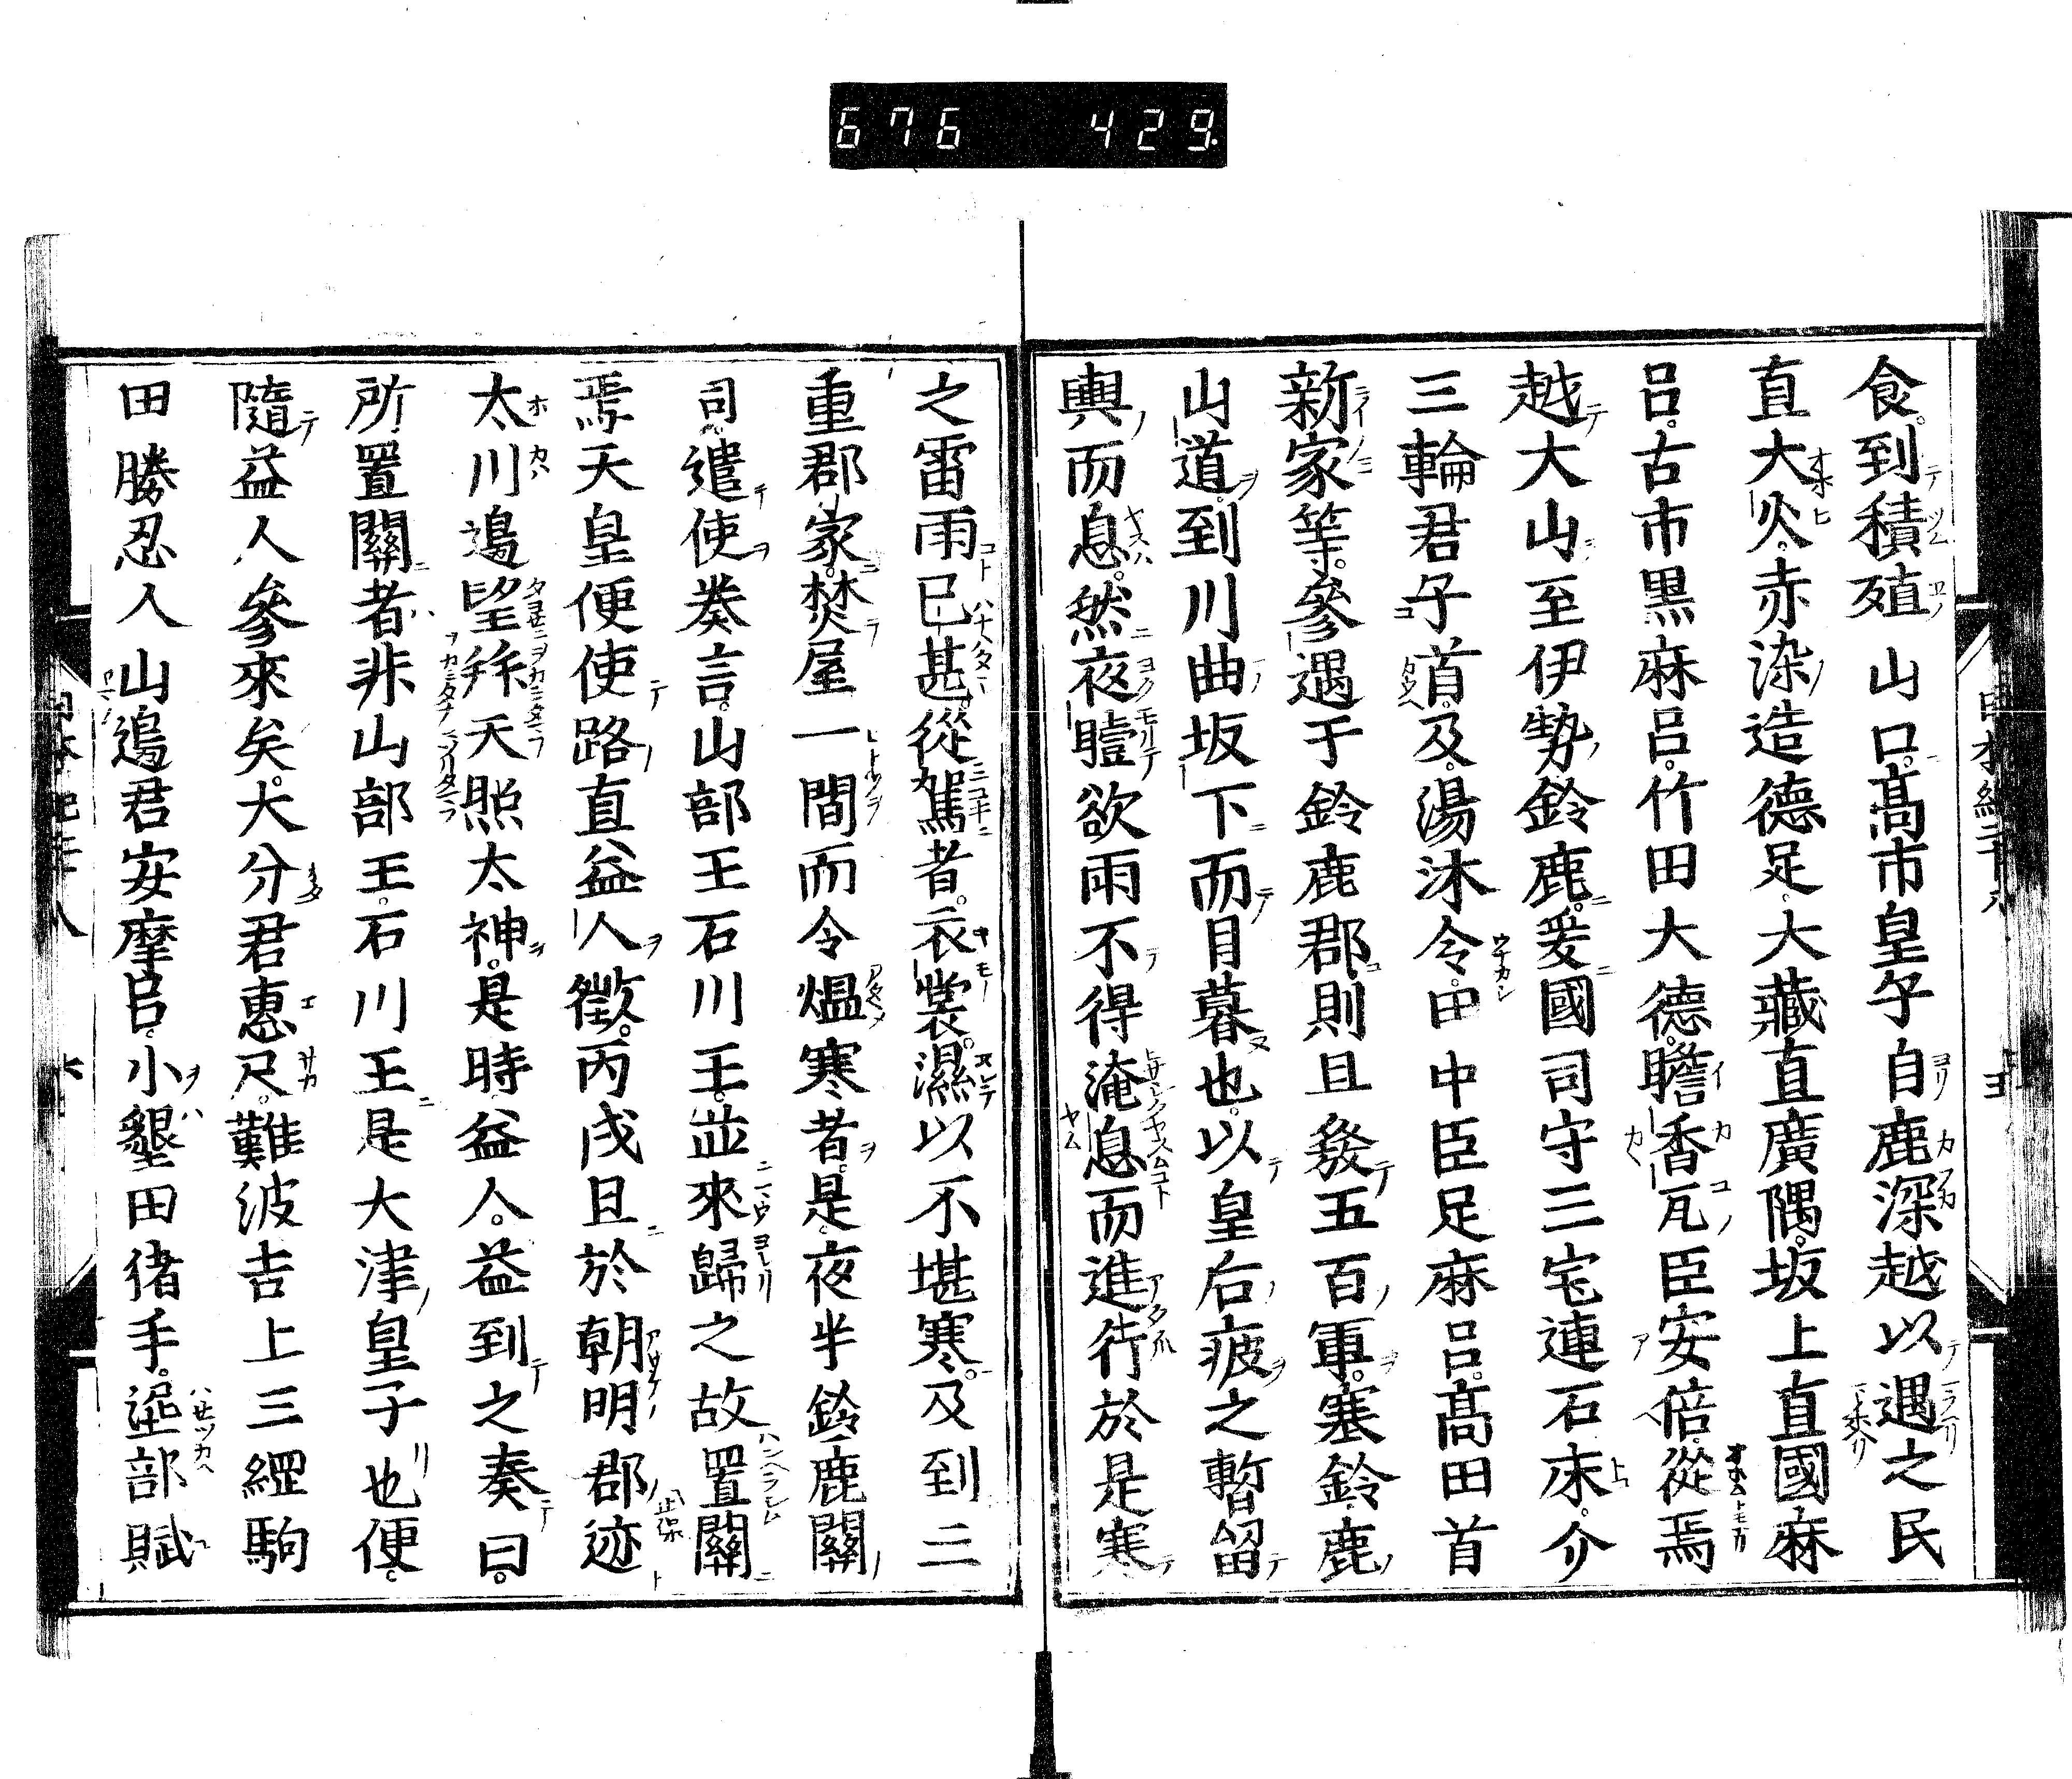 676 429
食到積殖山口髙市皇子自鹿深越以遇之民
直大火赤染造德足大藏直廣隅坂上直國麻
呂古市黒麻呂竹田大德瞻香瓦臣安倍從焉
越大山至伊勢鈴鹿爰國司守三宅連石床介
三輪君子首及湯沐令田中臣足麻呂髙田首
新家等參遇于鈴鹿郡則且發五百軍塞鈴鹿
山道到川曲坂下而日暮也以皇后疲之暫留
輿而息然夜曀欲雨不得淹息而進行於是寒
之雷雨已甚從駕者衣裳濕以不堪寒及到三
重郡家焚屋一間而令熅寒者是夜半鈴鹿關
司遣使奏言山部王石川王並來歸之故置關
焉天皇便使路直益人徵丙戌旦於朝明郡迹
太川邊望拜天照太神是時益人益到之奏曰
所置關者非山部王石川王是大津皇子也便
隨益人參來矣大分君惠尺難波吉上三綱駒
田勝忍人山邊君安摩呂小墾田猪手埿部賦